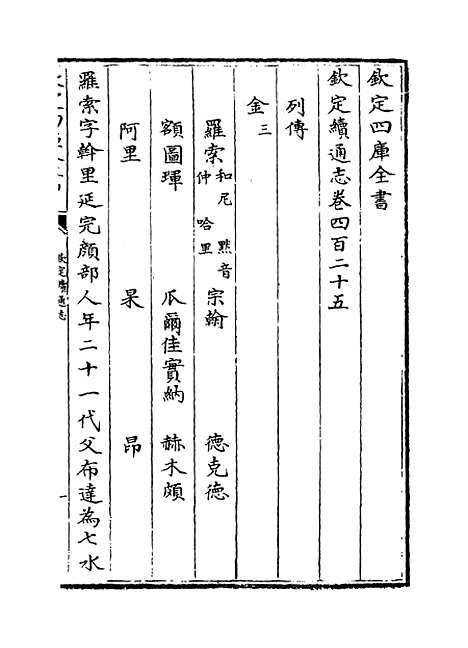 欽定四庫全書
欽定續通志卷四百二十五
列傳
金三
羅索和尼 黙音仲 哈里 宗翰 德克德
額圖琿 瓜爾佳實納 赫木頗
阿里 杲 昂
羅索字斡里延完顏部人年二十一代父布達為七水
欽定續通志
一